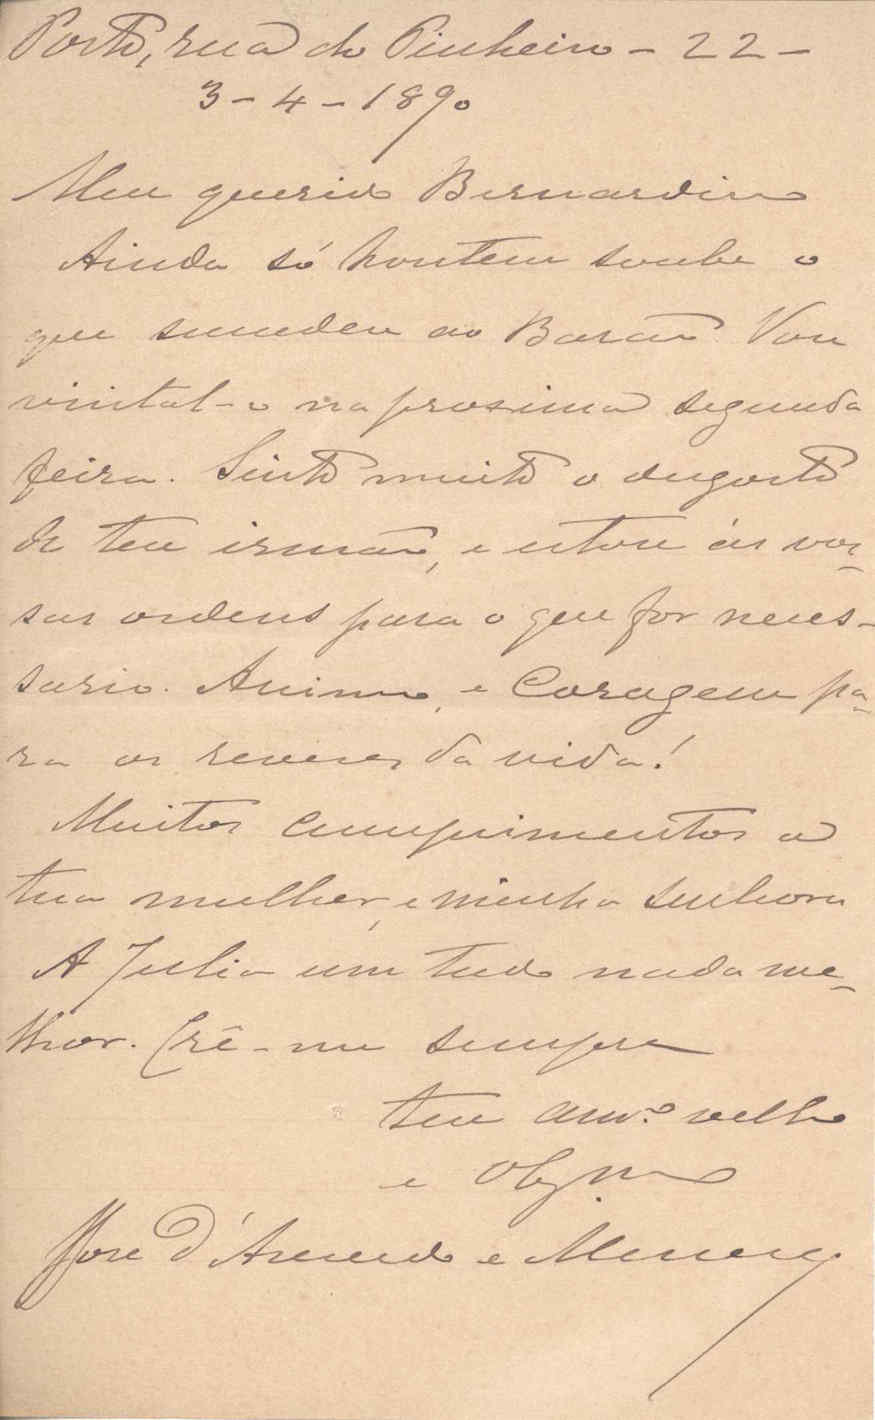 Porto, rua do Pinheiro - 22 -
3 - 4 - 1890
Meu querido Bernardino
Ainda só hontem soube o
que succedeu ao Barão. Vou
visital-o na proxima segunda
feira. Sinto muito o desgosto
de teu irmão, e estou ás vos-
sas ordens para o que for neces-
sario. Animo, e Coragem pa-
ra os revezes da vida!
Muitos cumprimentos a
tua mulher, e minha senhora
A Julia um tudo nada me-
lhor. Crê-me sempre
teu am.º velho
e obg.mo
José d'Azevedo e Menezes